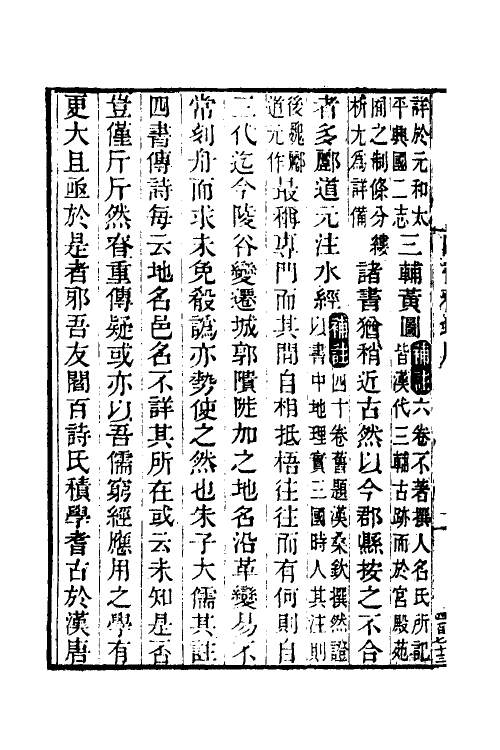 詳於元和太平興國二志三輔黃圖補註六卷不著撰人名氏所記皆漢代三輔古跡而於宮殿苑
囿之制條分縷析尤為詳備諸書猶稍近古然以今郡縣按之不合
者多酈道元注水經補註四十卷舊題漢桑欽撰然證以書中地理實三國時人其注則
後魏酈道元作最稱專門而其間自相抵梧往往而有何則自
三代迄今陵谷變遷城郭隤陡加之地名沿革變易不
常刻舟而求未免殽譌亦勢使之然也朱子大儒其註
四書傳詩每云地名邑名不詳其所在或云未知是否
豈僅斤斤然眘重傳疑或亦以吾儒窮經應用之學有
更大且亟於是者耶吾友閻百詩氏積學耆古於漢唐